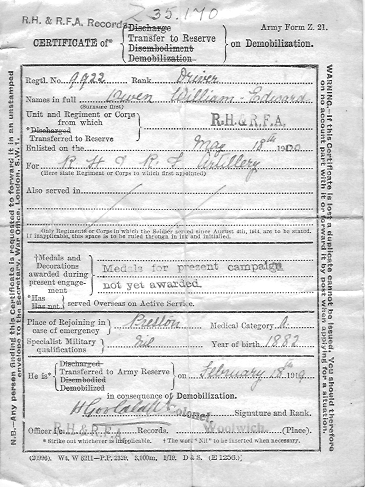 35.170
R.H. & R.F.A. Records
Army Form Z. 21.
CERTIFICATE of* { Discharge
Transfer to Reserve
Disembodiment
Demobilization } on Demobilization.
Regtl. No. 9922 Rank Driver
Names in full Owen William Edward
(Surname first)
Unit and Regiment or Corps
from which
*Discharged
Transferred to Reserve } R.H. & R.F.A.
Enlisted on the May 18th 1900
For R H & R F Artillery
(Here state Regiment or Corps to which first appointed)
Also served in
Only Regiments or Corps in which the Soldier served since August 4th, 1914, are to be stated.
If inapplicable, this space is to be ruled through in ink and initialled.
†Medals and
Decorations
awarded during
present engage-
ment } Medals for present campaign
not yet awarded.
*Has
Has not } served Overseas on Active Service.
Place of Rejoining in
case of emergency } Preston Medical Category A
Specialist Military
qualifications } Nil Year of birth 1882
He is* { Discharged
Transferred to Army Reserve
Disembodied
Demobilized } on February 18th 1919
in consequence of Demobilization.
Colonel Signature and Rank.
Officer i/c R.H. & R.F.A. Records. Woolwich. (Place).
* Strike out whichever is inapplicable. † The word "Nil" to be inserted when necessary.
WARNING.—If this Certificate is lost a duplicate cannot be issued. You should therefore
on no account part with it or forward it by post when applying for a situation.
N.B.—Any person finding this Certificate is requested to forward it in an unstamped
envelope to the Secretary, War Office, London, S.W. 1.